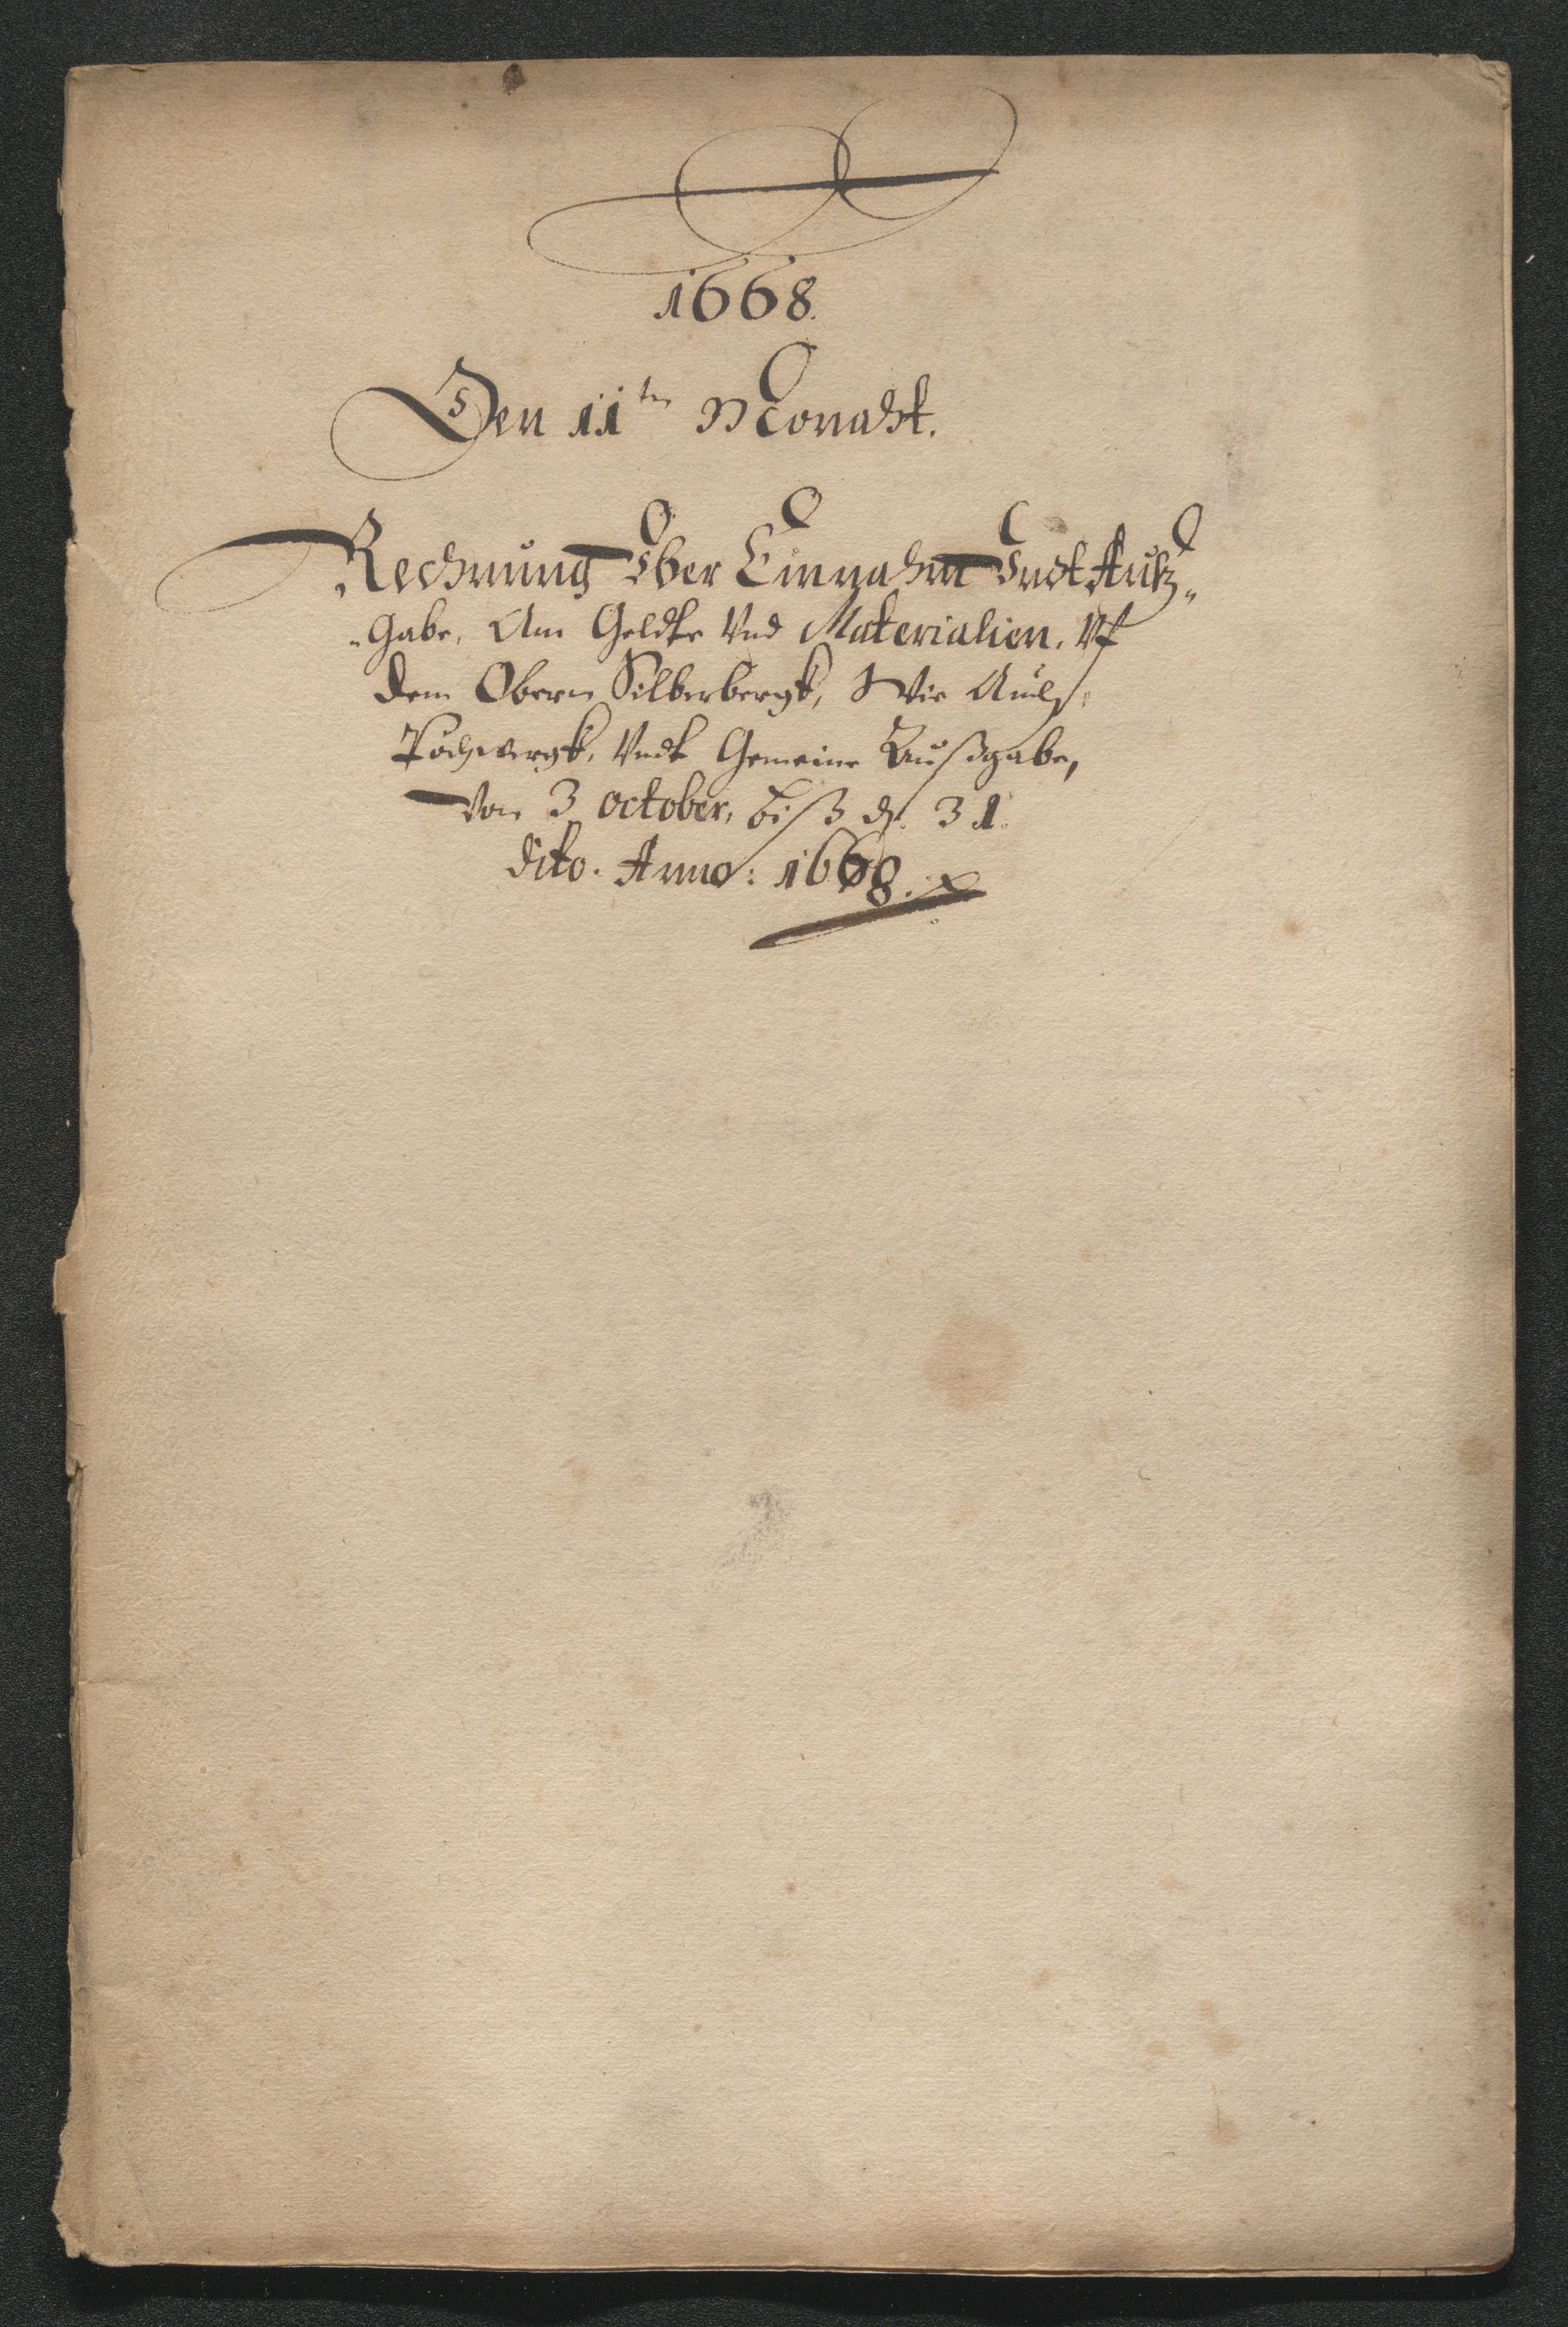 1668.
Den 11ten Monaht.
Rechnung Vber Einnahm Vndt Auß-
-Gabe, Am Geldte Vnd Materialien, Vf
dem Obern Silberbergk, Wie Auch
Pochwergk, Vndt Gemeine Außgabe,
Von 3 october, biß d. 31.
dito. Anno: 1668.